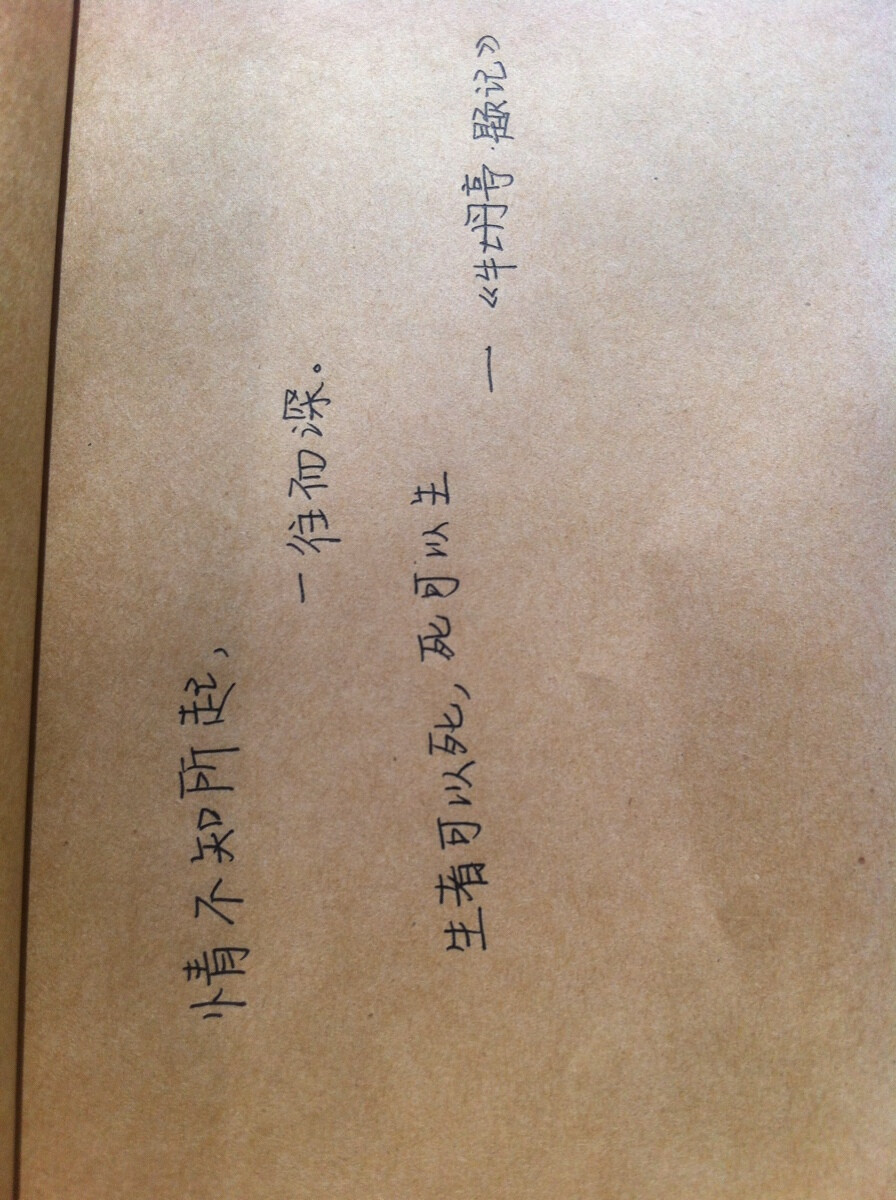 情不知所起，
一往而深。
生者可以死，死可以生
—《牡丹亭·题记》